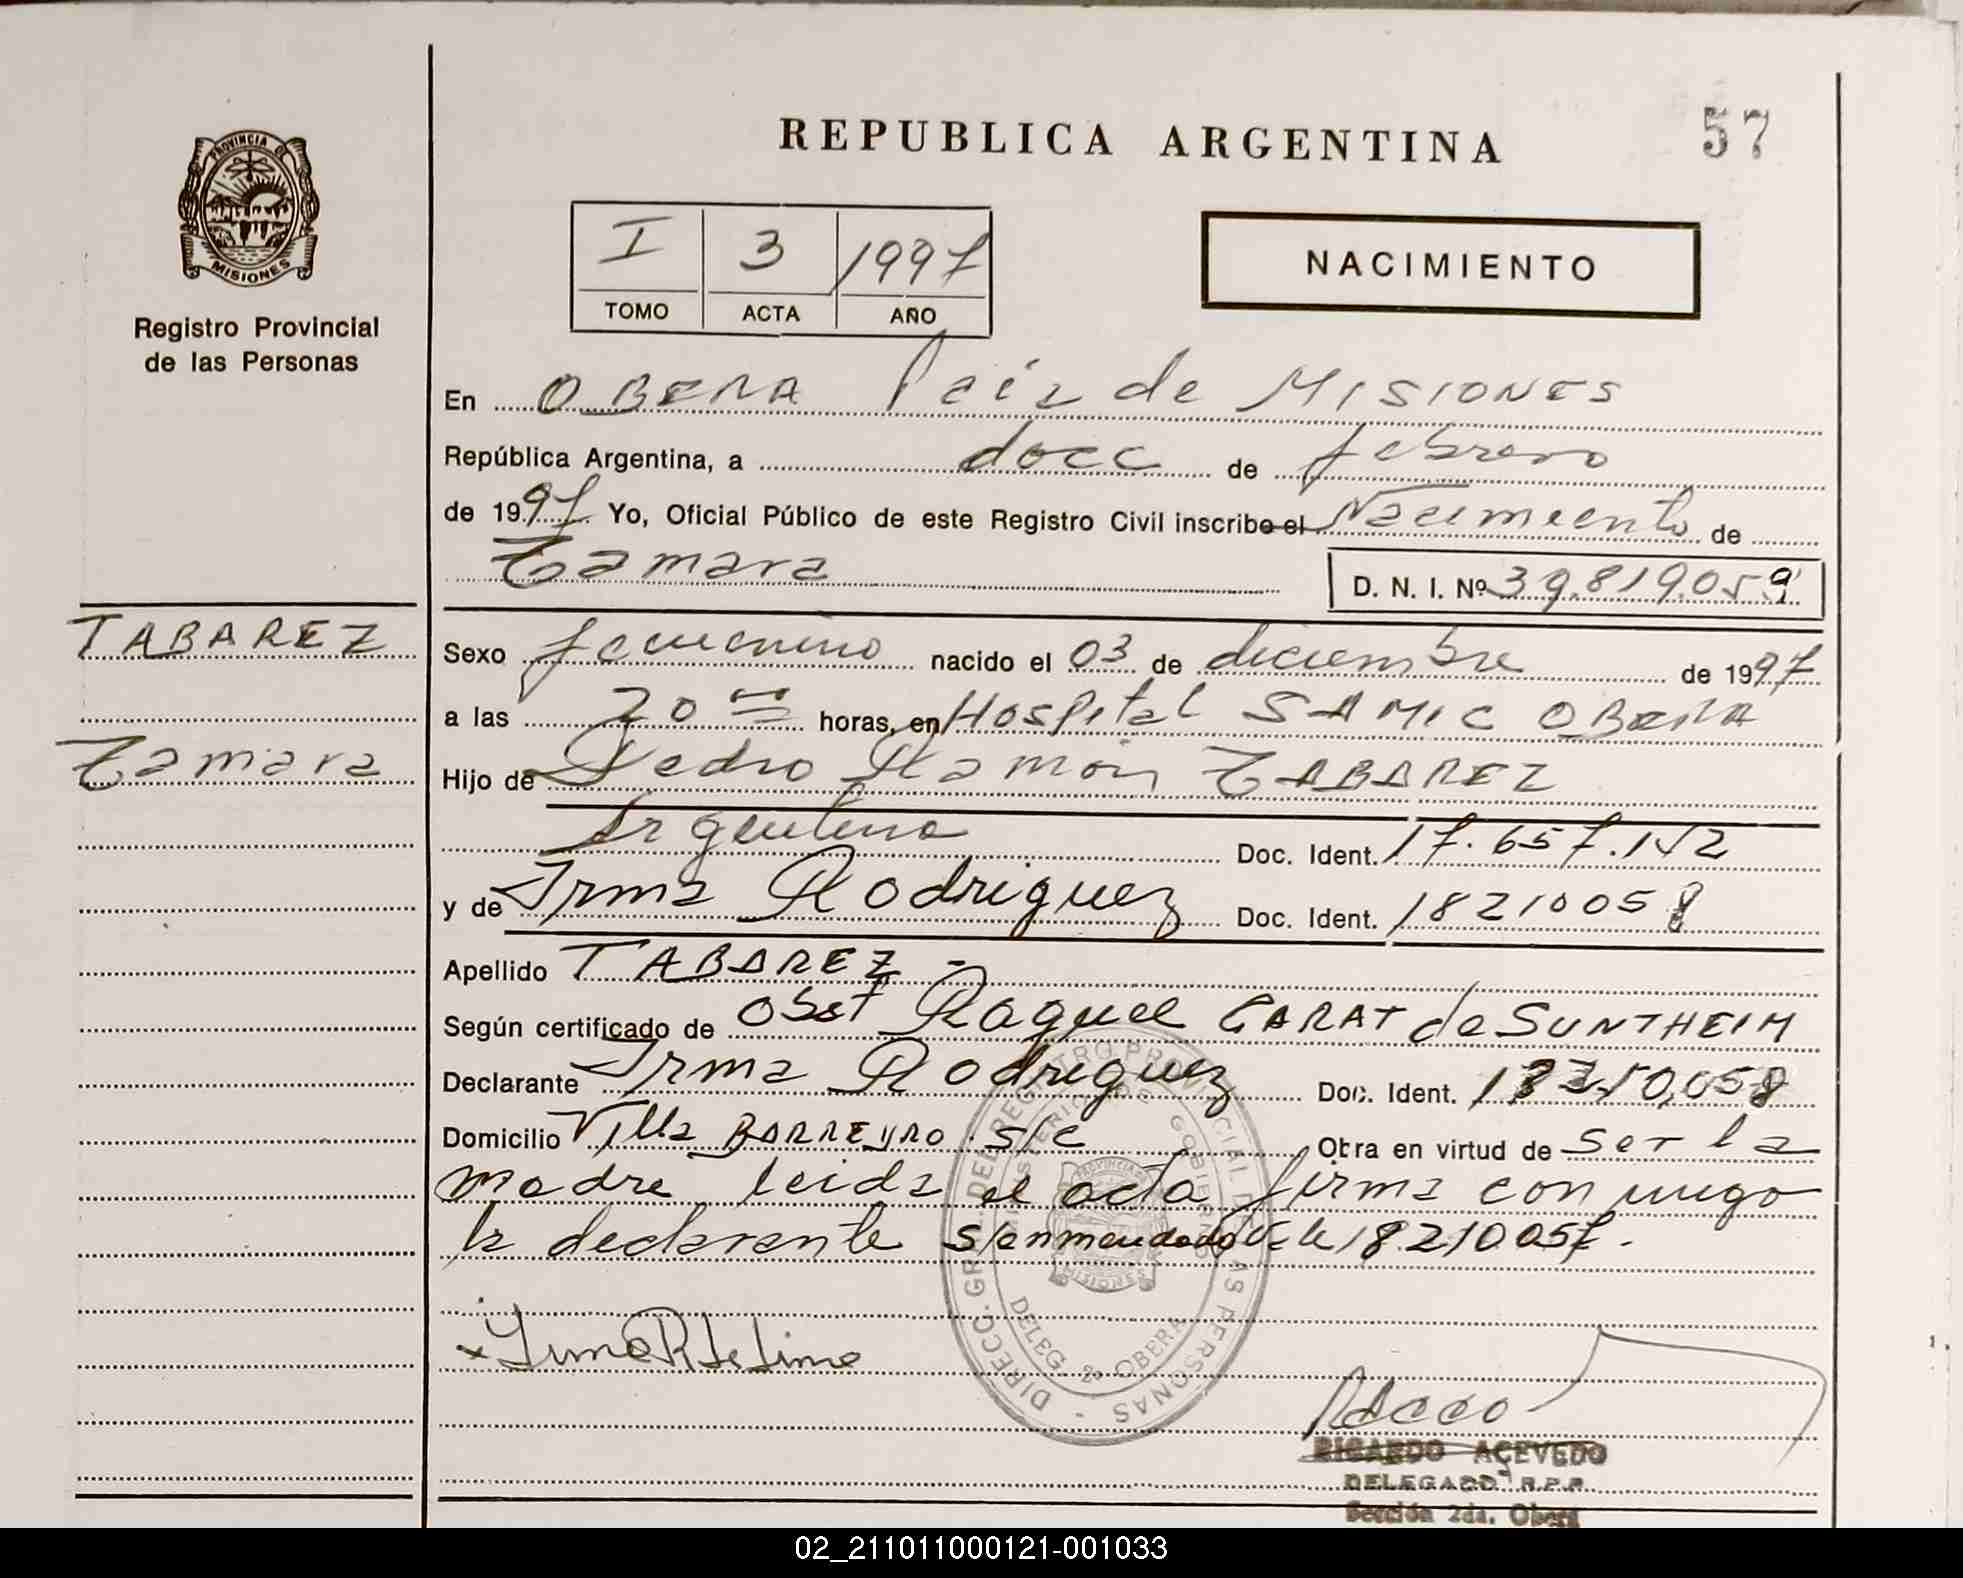 REPUBLICA ARGENTINA
57
PROVINCIA DE
MISIONES
Registro Provincial
de las Personas
I 3 1997
TOMO ACTA AÑO
NACIMIENTO
En OBERA Pcia de MISIONES
República Argentina, a doce de febrero
de 1997 Yo, Oficial Público de este Registro Civil inscribo el Nacimiento de
Tamara D. N. I. Nº 39.819.059
TABAREZ
Tamara
Sexo femenino nacido el 03 de diciembre de 1997
a las 20 horas, en Hospital SAMIC OBERA
Hijo de Pedro Ramón TABAREZ
Argentino Doc. Ident. 17.657.152
y de Irma Rodriguez Doc. Ident. 18210058
Apellido TABAREZ -
Según certificado de Obst Raquel GARAT de SUNTHEIM
Declarante Irma Rodriguez Doc. Ident.
Domicilio Villa BARREYRO s/c Obra en virtud de ser la
madre leida el acta firma conmigo
la declarante s/enmendado Vale 18.210.057.
DIRECC. GRAL. DEL REGISTRO PROVINCIAL DE LAS PERSONAS
MINISTERIO DE GOBIERNO
PROVINCIA
MISIONES
DELEG. 2ª OBERA
RICARDO ACEVEDO
DELEGADO R.P.P.
Sección 2da. Oberá
02_211011000121-001033